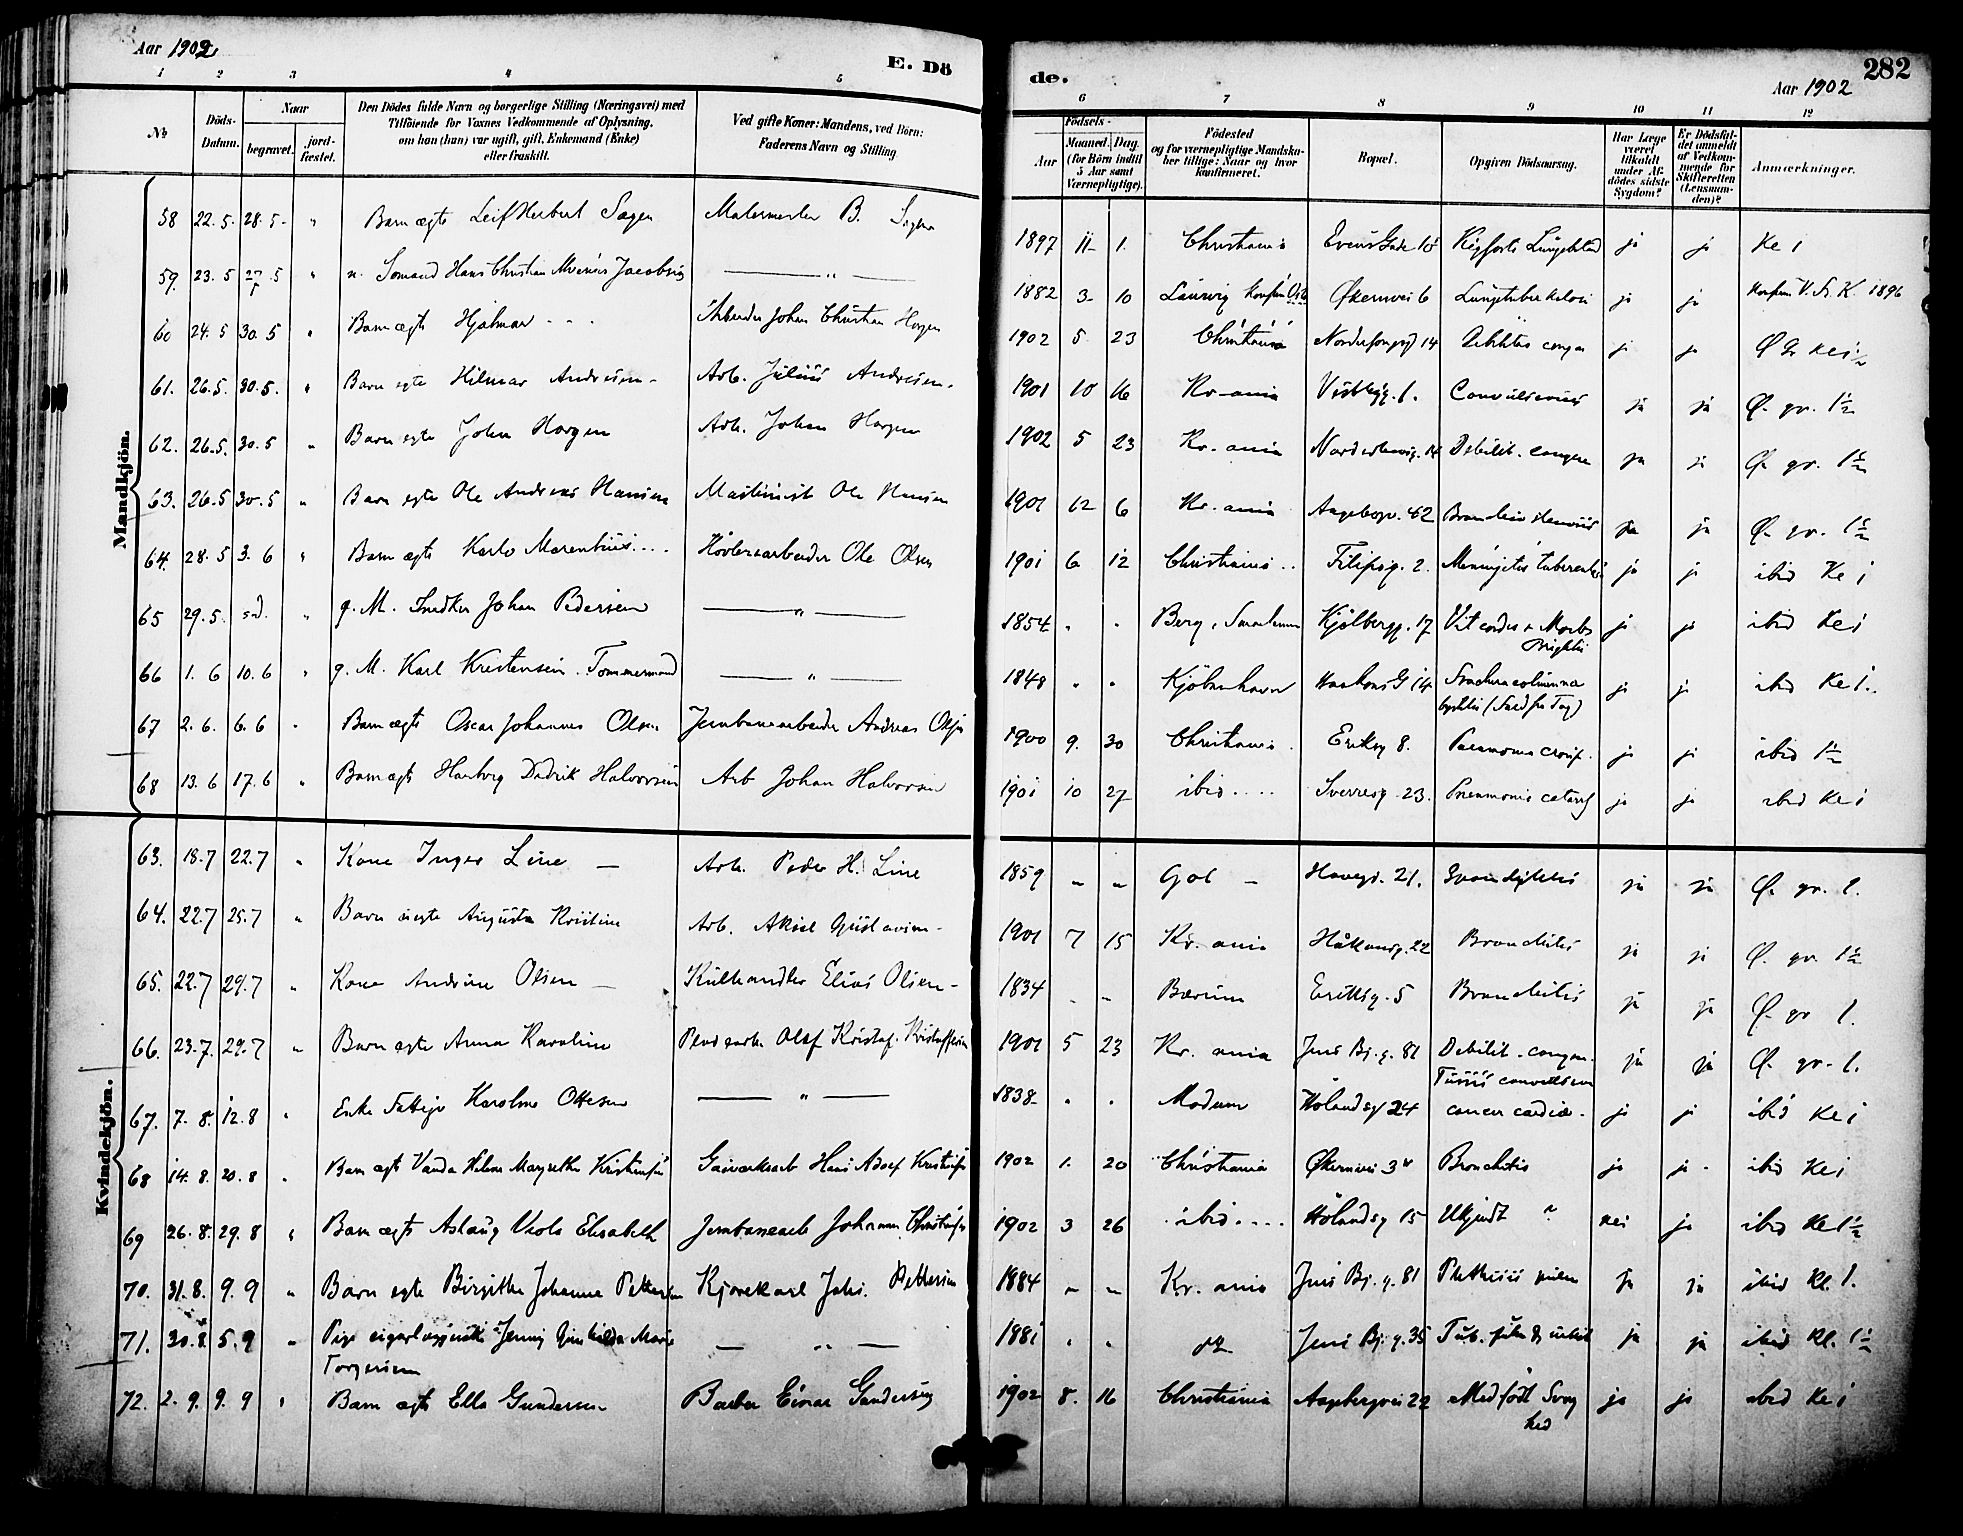 Aar 1902
E. Dö
de.
282
Aar 1902
1 2 3 4 5 6 7 8 9 10 11 12
№
Döds-Datum.
Naar
begravet.
jord-fæstet.
Den Dödes fulde Navn og borgerlige Stilling (Næringsvei) med
Tilföiende for Voxnes Vedkommende af Oplysning,
om han (hun) var ugift, gift, Enkemand (Enke)
eller fraskilt.
Ved gifte Koner: Mandens, ved Börn:
Faderens Navn og Stilling
Födsels-
Aar
Maaned. Dag.
(for Börn indtil
5 Aar samt
Værnepligtige).
Födested
og for værnepligtige Mandska-
ber tillige: Naar og hvor
konfirmeret.
Bopæl.
Opgiven Dödsaarsag.
Har Læge
været
tilkaldt
under Af-
dödes sidste
Sygdom?
Er Dödsfal-
det anmeldt
af Vedkom-
mende for
Skifteretten
(Lensman-
den)?
Anmærkninger.
Mandkjön.
58 22.5. 28.5 " Barn ægte Leif Herbert Sagen Malermester B. Sagen 1897 11 1. Christiania 10 ja ja Kl 1
59. 23.5 27.5 " u. Sømand Hans Christian Jacobsen — " — 1882 3 10 Laurvig Økernvei 6 ja ja 1896
60 24.5 30.5 " Barn ægte Hjalmar Johan Christian Horgen 1902 5 23 Christiania 14 ja ja
61. 26.5. 30.5. " Barn egte Hilmar Andresen Arb. Julius Andresen. 1901 10 16 Kr-ania 1. ja ja Ø. gr. 1½
62. 26.5. 30.5 " Barn egte John Horgen Arb. Johan Horgen 1902 5 23 Kr. ania 14 Debilit. congen ja ja Ø. gr. 1½
63. 26.5 30.5 " Barn egte Ole Andreas Hansen Maskinist Ole Hansen 1901 12 6 Kr. ania 42 ja ja Ø. gr. 1½
64. 28.5 3.6 " Barn ægte Karlo Marentius Høvleriarbeider Ole Olsen 1901 6 12 Christiania Filipsg. 2. Meningitis tubercul ja ja ibid Kl 1
65 29.5. s.d. " g. M. Snedker Johan Pedersen — " — 1854 " " Berg, Kjølbergg. 17 Vit cordis & Morb. Brightii ja ja ibid Kl 1
66 1.6 10.6 " g. M. Karl Kristensen Tømmermand — " — 1848 " " Kjøbenhavn Haakons G 14 Fractura columna (Fald fra Tag) ja ja ibid Kl 1.
67 2.6. 6.6 " Barn ægte Oscar Johannes Olsen Jernbanearbeider Andreas Olsen 1900 9. 30 Christiania Eriksg 8. Pneumonia croup. ja ja ibid 1½
68 13.6 17.6 " Barn ægte Didrik Halvorsen Arb Johan Halvorsen 1901 10 27 ibid.... Sverresg 23. Pneumonia catarrh ja ja ibid Kl 1
Kvindekjön.
63. 18.7 22.7 " Kone Inger Line — Arb. Peder H. Line 1859 " " Gol — Haveg. 21. ja ja Ø. gr. 1.
64. 22.7 25.7 " Barn uegte Augusta Kristine Arb. Aksel Gustavsen 1901 7 15 Kr. ania Håkonsg. 22 Bronchitis ja ja Ø. gr. 1½
65. 22.7 29.7 " Kone Andrine Olsen — Kulhandler Elias Olsen 1834 " " Bærum Eriksg. 5 Bronchitis ja ja Ø. gr 1.
66. 23.7. 29.7 " Barn egte Anna Karoline Olaf Kristof. Kristoffersen 1901 5 23 Kr. ania Jens Bj. g. 81 Debilit. congen. Tussis convulsiva ja ja Ø. gr. 1.
67. 7.8. 12.8 " Enke Fattige Karoline Ottesen — " — 1838 " " Modum Hølandsg 24 cancer cardiæ ja ja ibid Kl 1
68 14.8. 20.8 " Barn ægte Vanda Helene Margrethe Kristensen Gasværksarb Hans Adolf Kristensen 1902 1. 20 Christiania Økernvei 3 Bronchitis ja ja ibid Kl 1
69 26.8. 29.8 " Barn ægte Aslaug Viola Elisabeth Jernbanearb Johannes 1902 3 26 ibid.... Hølandsg 15 Ukjendt nei ja ibid Kl 1½
70. 31.8. 9.9 " Barn egte Birgitte Johanne Pettersen Kjørekarl Johs. Pettersen 1884 " " Kr. ania Jens Bj. g. 81 Phthisis pulm ja ja ibid Kl. 1.
71. 30.8. 5.9 " Pige Jenny Gunhilda Marie Torgersen — " — 1881 " " Jens Bj. g. 35 Tub. pulm ja ja ibid Kl. 1½
72. 2.9. 9.9 " Barn ægte Ella Gundersen Barber Einar Gundersen 1902 8. 16 Christiania Aagebergvei 22 Medfødt Svag hed ja ja ibid Kl 1